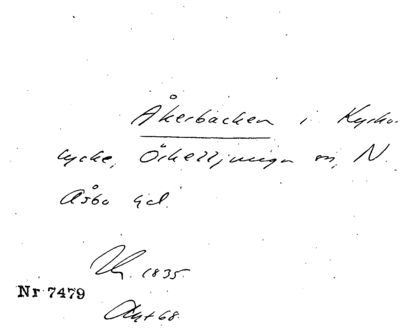 Åkerbacken i Kyrko-
lycke, Örkelljunga sn, N.
Åsbo hd.
1835.
Nr 7479
68.